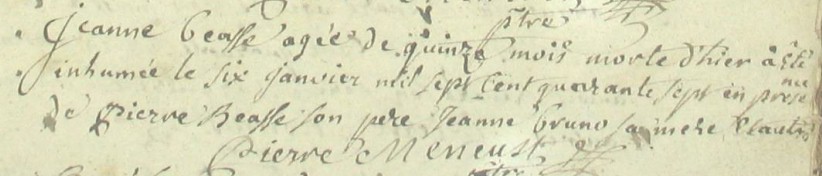 ptre
Jeanne Beasse agée de quinze mois morte d'hier à eté
inhumée le six janvier mil sept cent quarante sept en prese nce
de Pierre Beasse son pere Jeanne Bruno sa mere & autres
Pierre Meneust
ptre